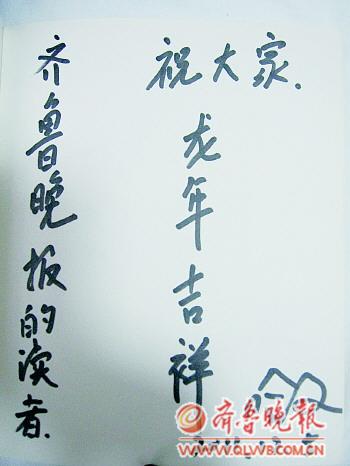 齐鲁晚报的读者.
祝大家.
龙年吉祥
齐鲁晚报
WWW.QLWB.COM.CN